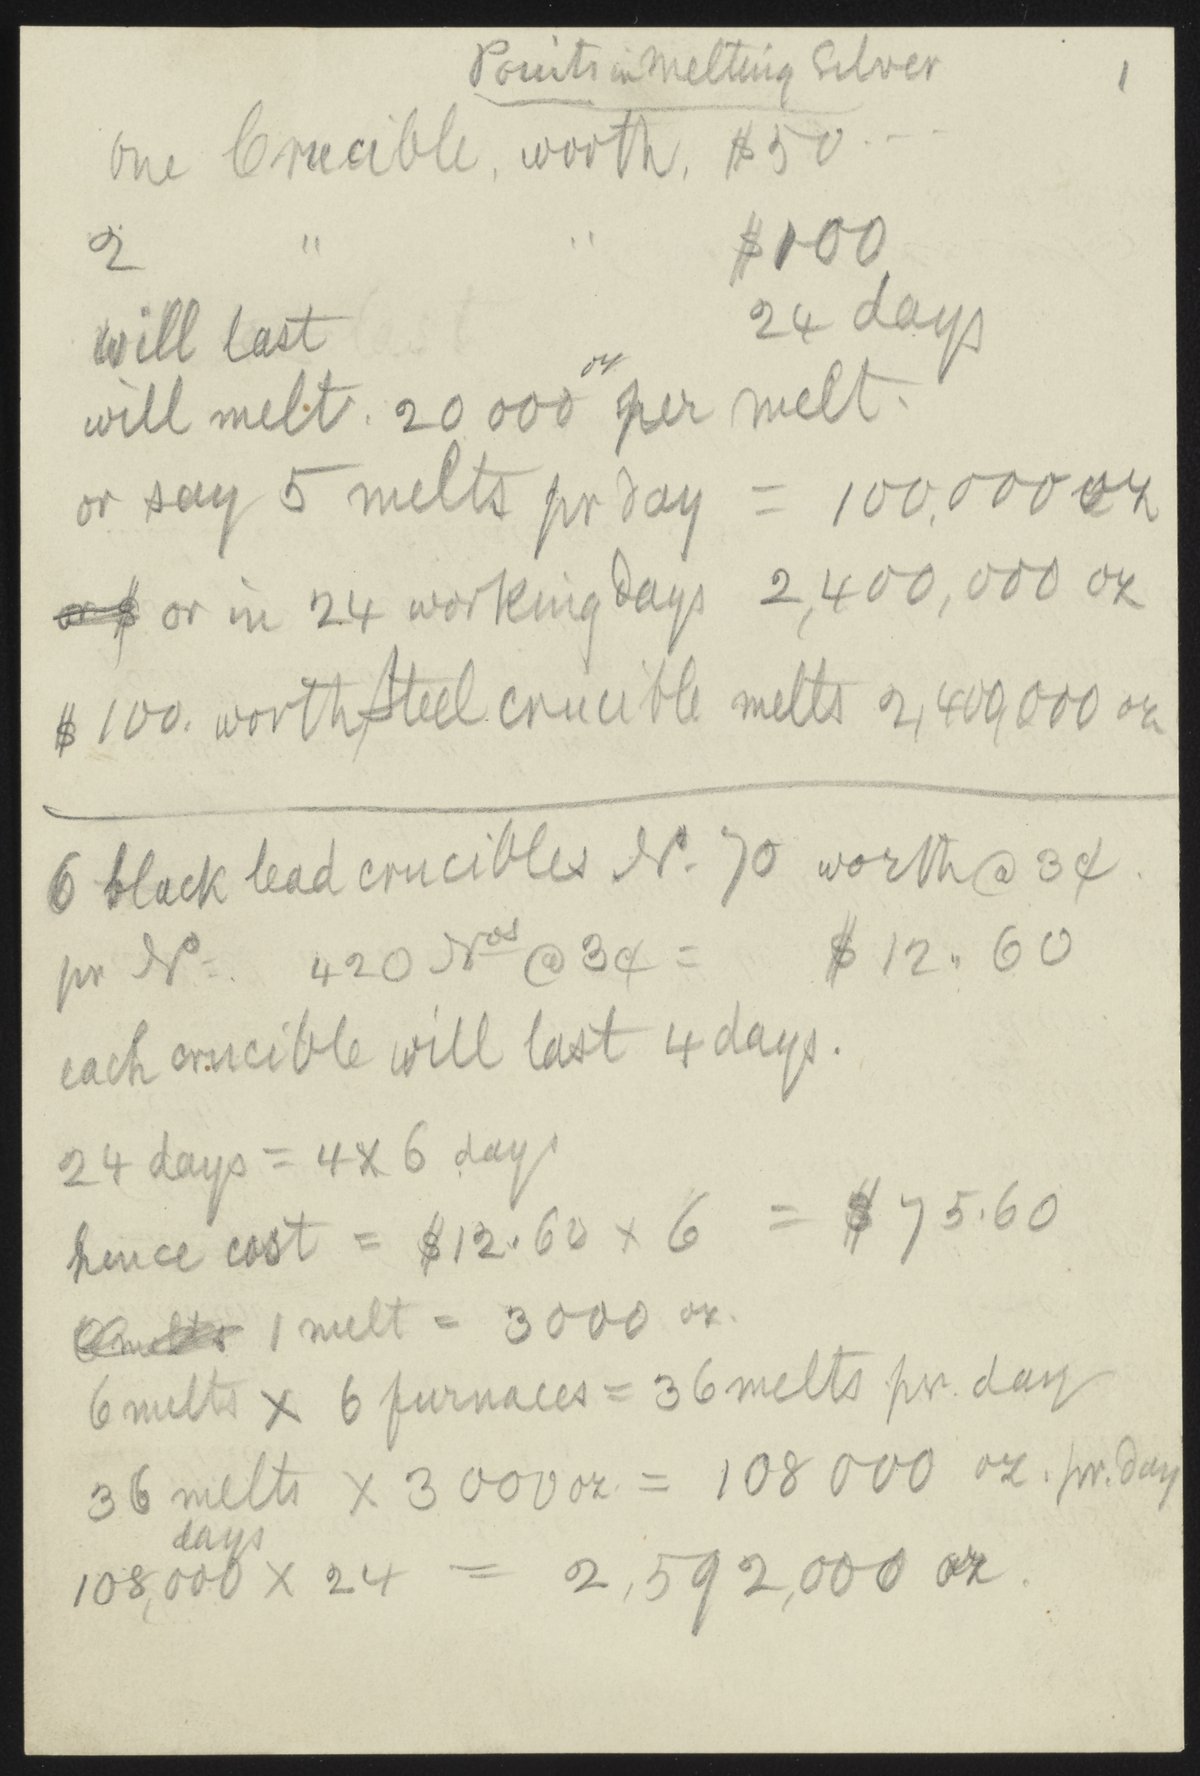 Points in melting Silver 1
one Crucible, worth, $50 --
2 " " $100
will last 24 days
will melt. 20 000 oz per melt.
or say 5 melts pr day = 100,000 oz
or $ or in 24 working days 2,400,000 oz
$100. worth, Steel crucible melts 2,400,000 oz
6 black lead crucibles No. 70 worth @ 3¢.
pr No=. 420 Nos @ 3¢ = $12.60
each crucible will last 4 days.
24 days = 4 x 6 days
hence cost = $12.60 x 6 = $75.60
6 melts 1 melt = 3000 oz.
6 melts x 6 furnaces = 36 melts pr. day
36 melts x 3000 oz. = 108 000 oz. pr. day
days
108,000 x 24 = 2,592,000 oz.